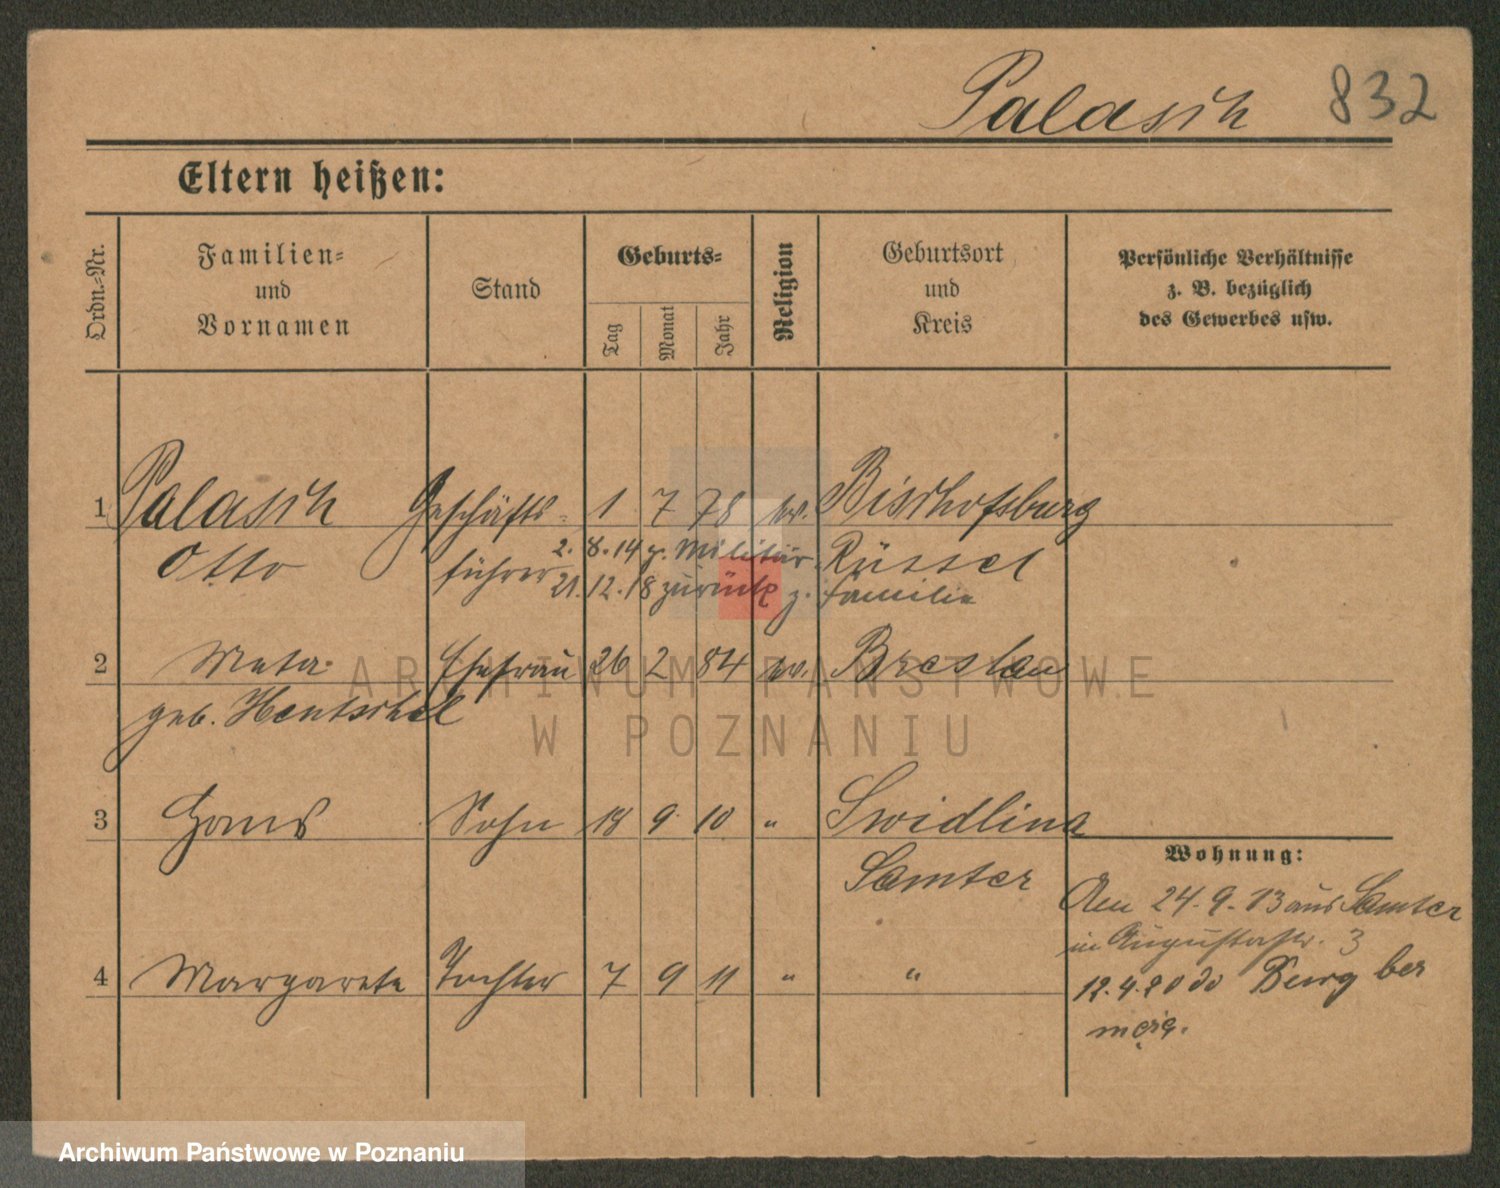 Palasch 832
Eltern heißen:
Ordn.-Nr.
Familien-
und
Vornamen
Stand
Geburts-
Tag
Monat
Jahr
Religion
Geburtsort
und
Kreis
Persönliche Verhältnisse
z. B. bezüglich
des Gewerbes usw.
1 Palasch Geschäfts- 1 7 78 ev. Bischofsburg
Otto führer 2.8.14 z. Militär Rüssel
21.12.18 zurück z. Familie
2 Meta Ehefrau 26 2 84 ev. Breslau
geb. Hentschel
ARCHIWUM PAŃSTWOWE
W POZNANIU
3 Hans Sohn 18 9 10 " Swidlina
Samter
Wohnung:
Am 24.9.13 aus Samter
in Augustastr. 3
4 Margarete Tochter 7 9 11 " "
12.4.20 do Burg bei
Archiwum Państwowe w Poznaniu